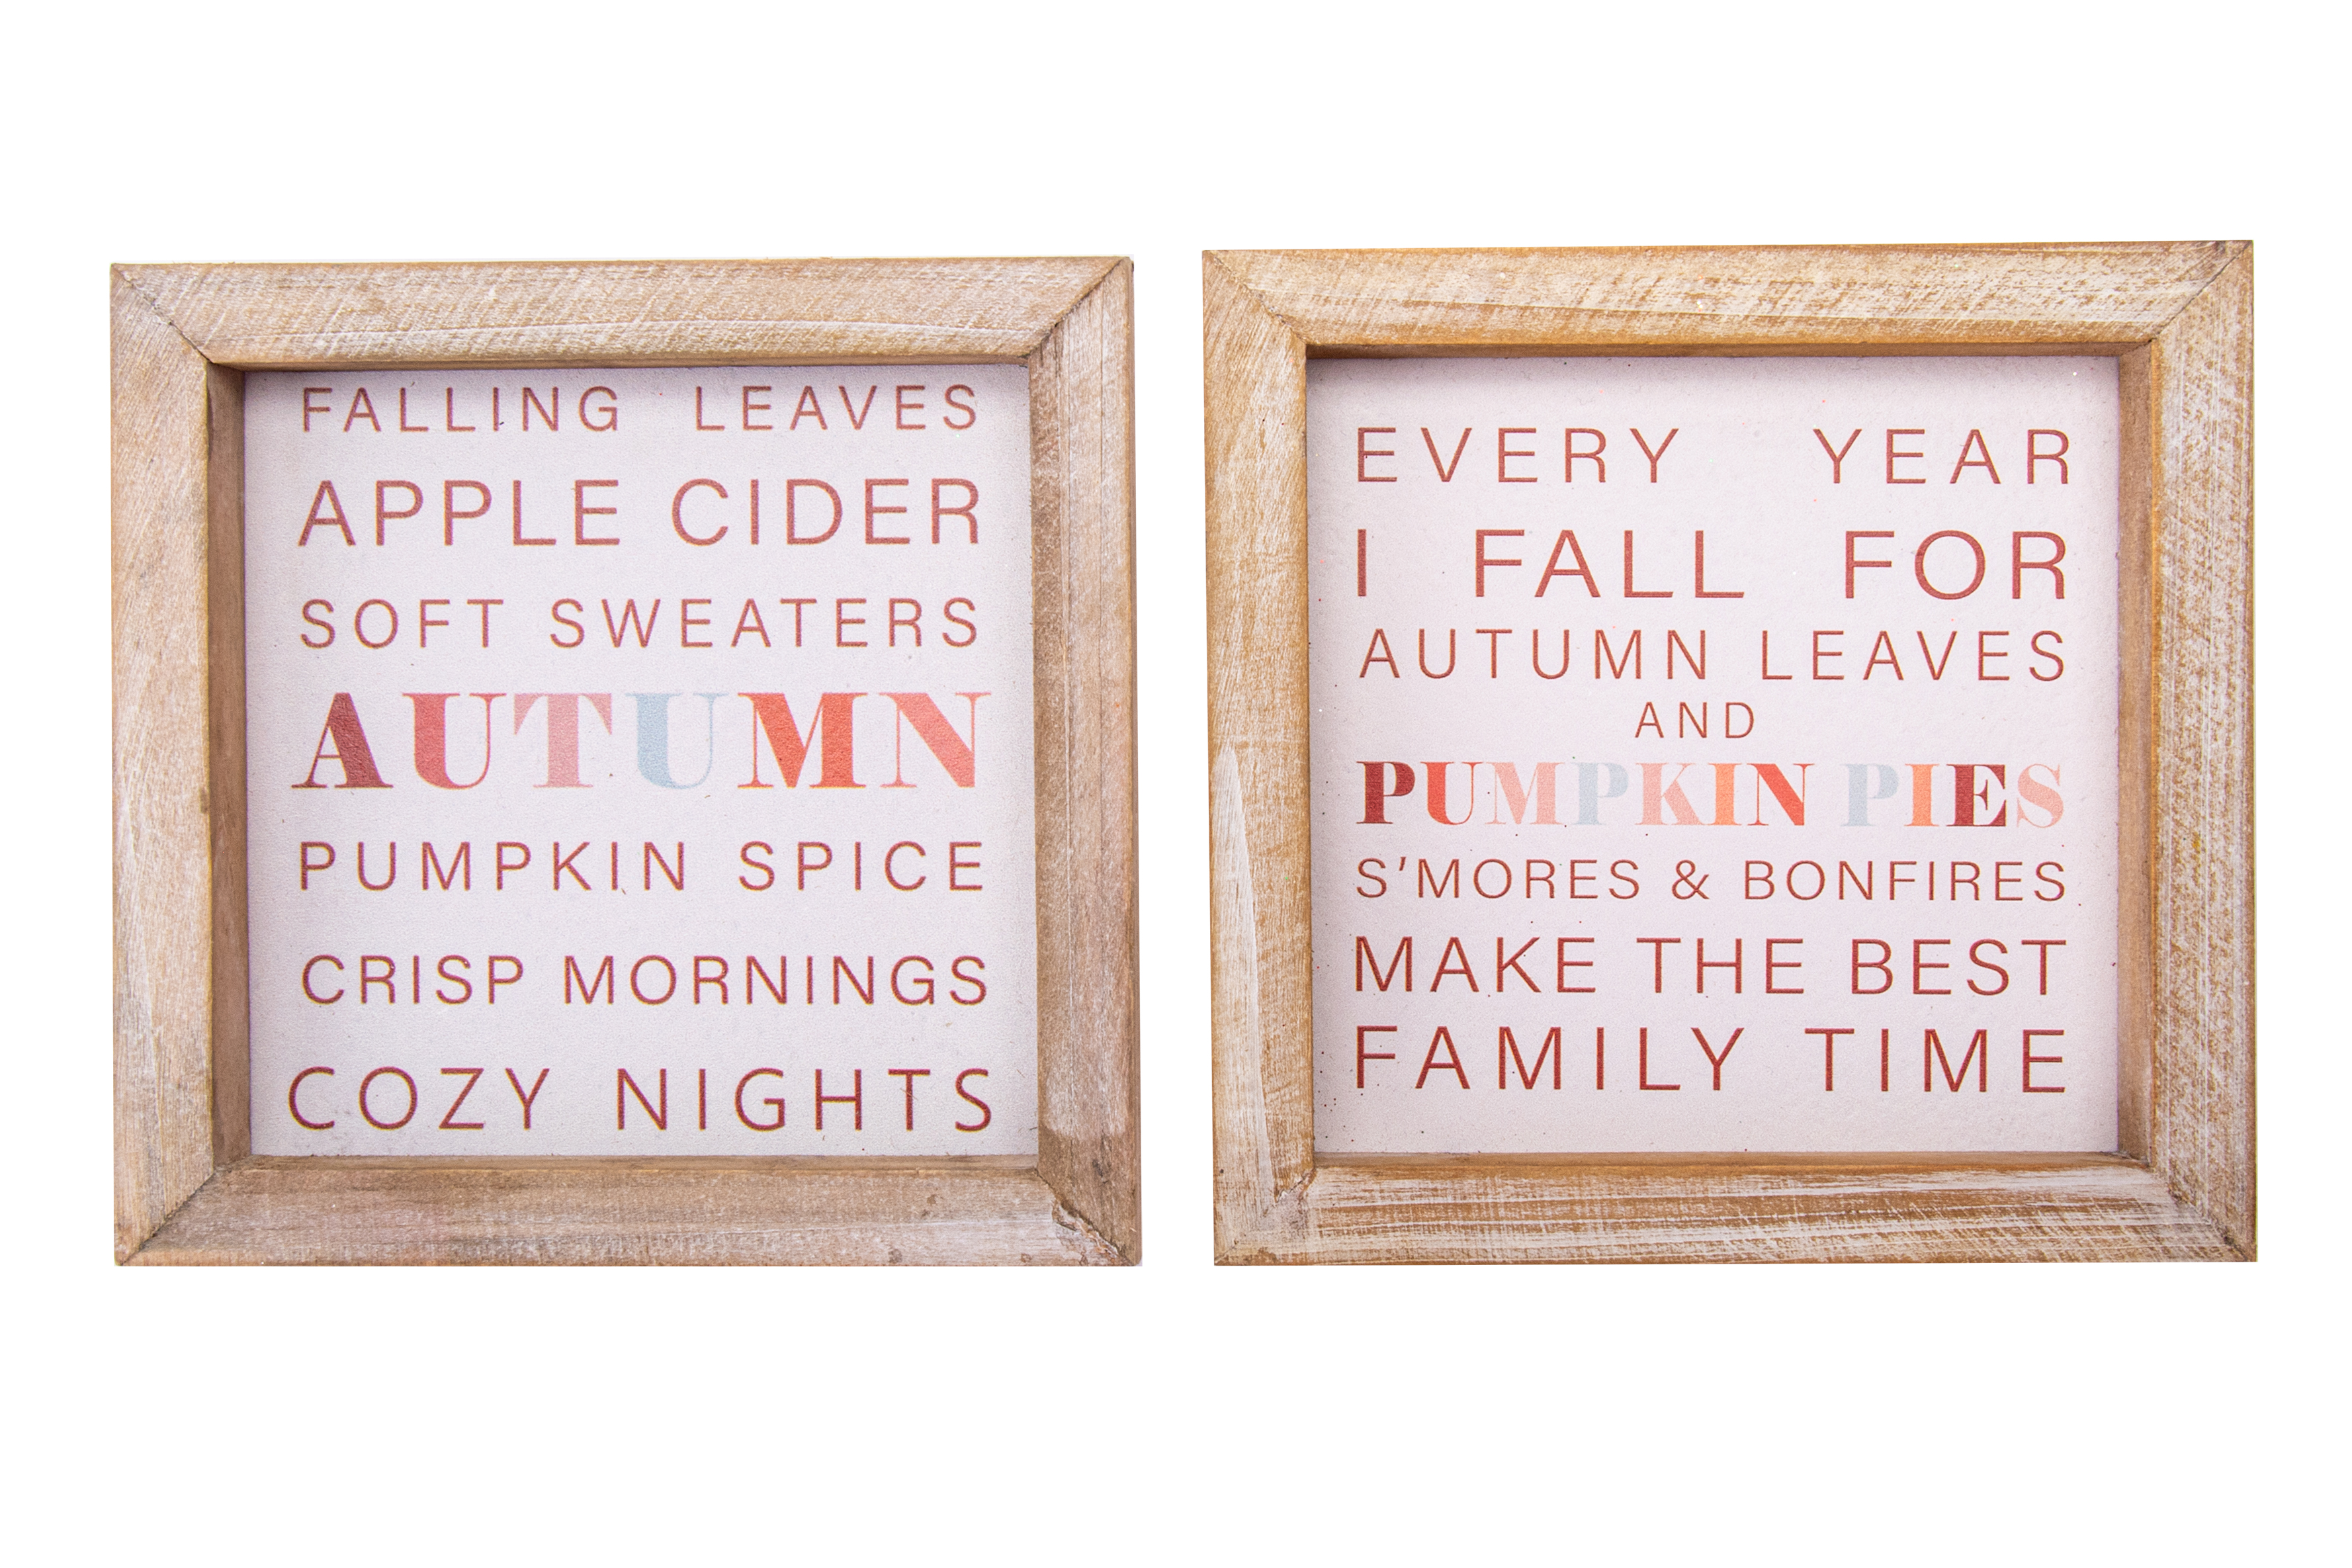 FALLING LEAVES
APPLE CIDER
SOFT SWEATERS
AUTUMN
PUMPKIN SPICE
CRISP MORNINGS
COZY NIGHTS
EVERY YEAR
I FALL FOR
AUTUMN LEAVES
AND
PUMPKIN PIES
S'MORES & BONFIRES
MAKE THE BEST
FAMILY TIME